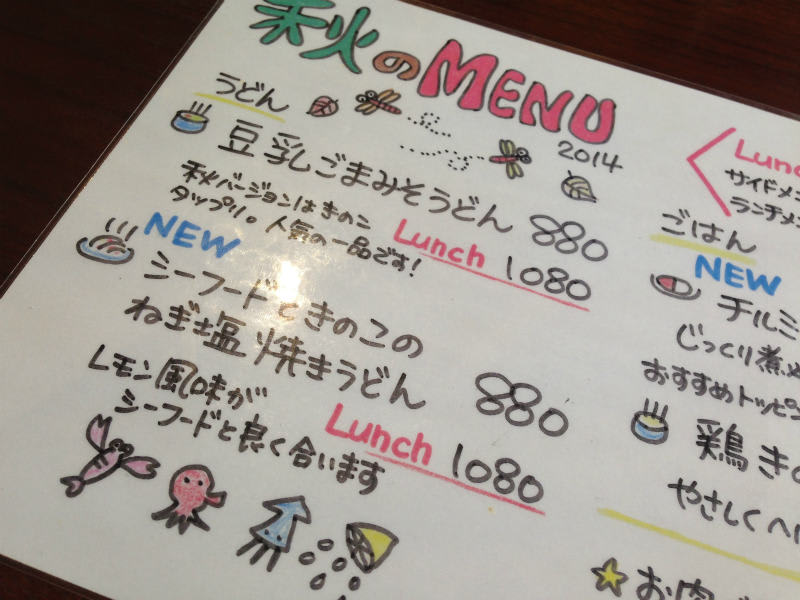 秋のMENU
2014
うどん
豆乳ごまみそうどん 880
秋バージョンはきのこ
タップリ。人気の一品です!
Lunch 1080
NEW
シーフードときのこの
ねぎ塩焼きうどん 880
レモン風味が
シーフードと良く合います
Lunch 1080
サイドメ
ランチメ
ごはん
NEW
チルミ
じっくり煮
おすすめトッピン
鶏き
やさしくヘ
★お肉